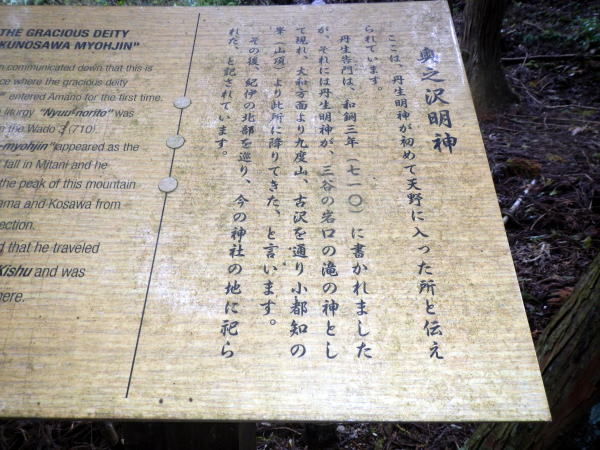 THE GRACIOUS DEITY
KUNOSAWA MYOHJIN"
n communicated down that this is
ce where the gracious deity
" entered Amano for the first time.
liturgy "Nyuu-norito" was
n the Wado 3 (710).
-myohjin" appeared as the
fall in Mitani and he
the peak of this mountain
ama and Kosawa from
ection.
d that he traveled
Kishu and was
here.
奥之沢明神
ここは、丹生明神が初めて天野に入った所と伝え
られています。
丹生告門は、和銅三年(七一〇)に書かれました
が、それには丹生明神が、三谷の岩口の滝の神とし
て現れ、大和方面より九度山、古沢を通り小都知の
峯(山頂)より此所に降りてきた、と言います。
その後、紀伊の北部を巡り、今の神社の地に祀ら
れた、と記されています。